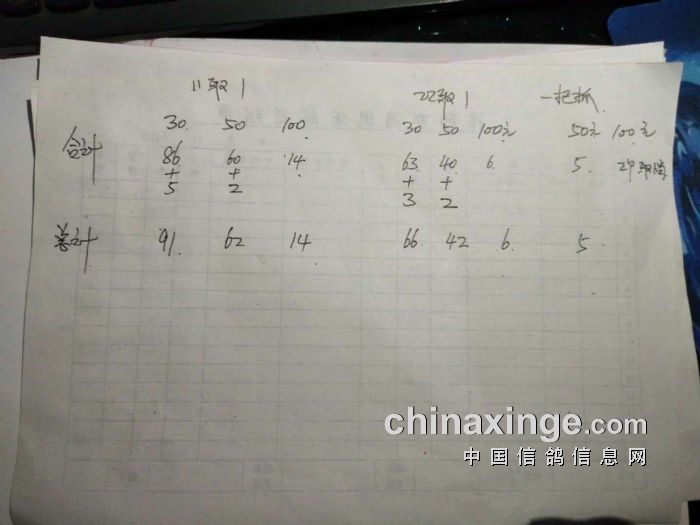 11取1 22取1 一把抓
30. 50 100 30 50 100元 50元 100元
合计 86 60 14 63 40 6 5 取消
+ + + +
5 2 3 2
总计 91 62 14 66 42 6 5
chinaxinge.com
中国信鸽信息网